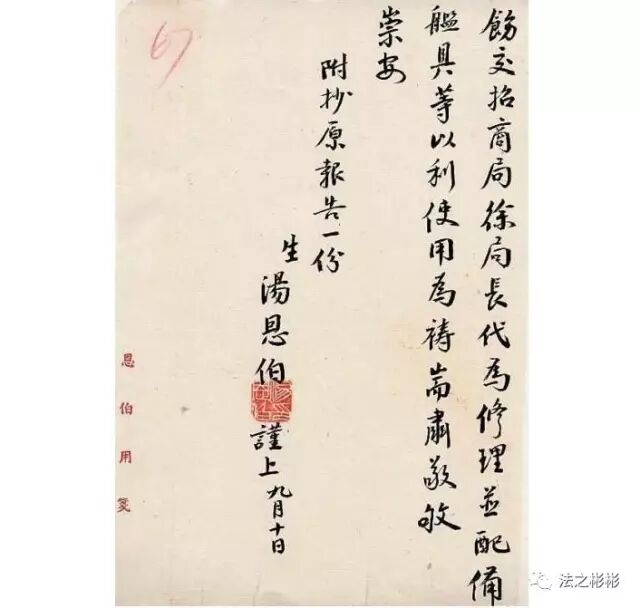 飭交招商局徐局長代為修理並配備
艦具等以利使用為禱耑肅敬敂
崇安
附抄原報告一份
生湯恩伯謹上九月十日
恩伯用箋
67
法之彬彬